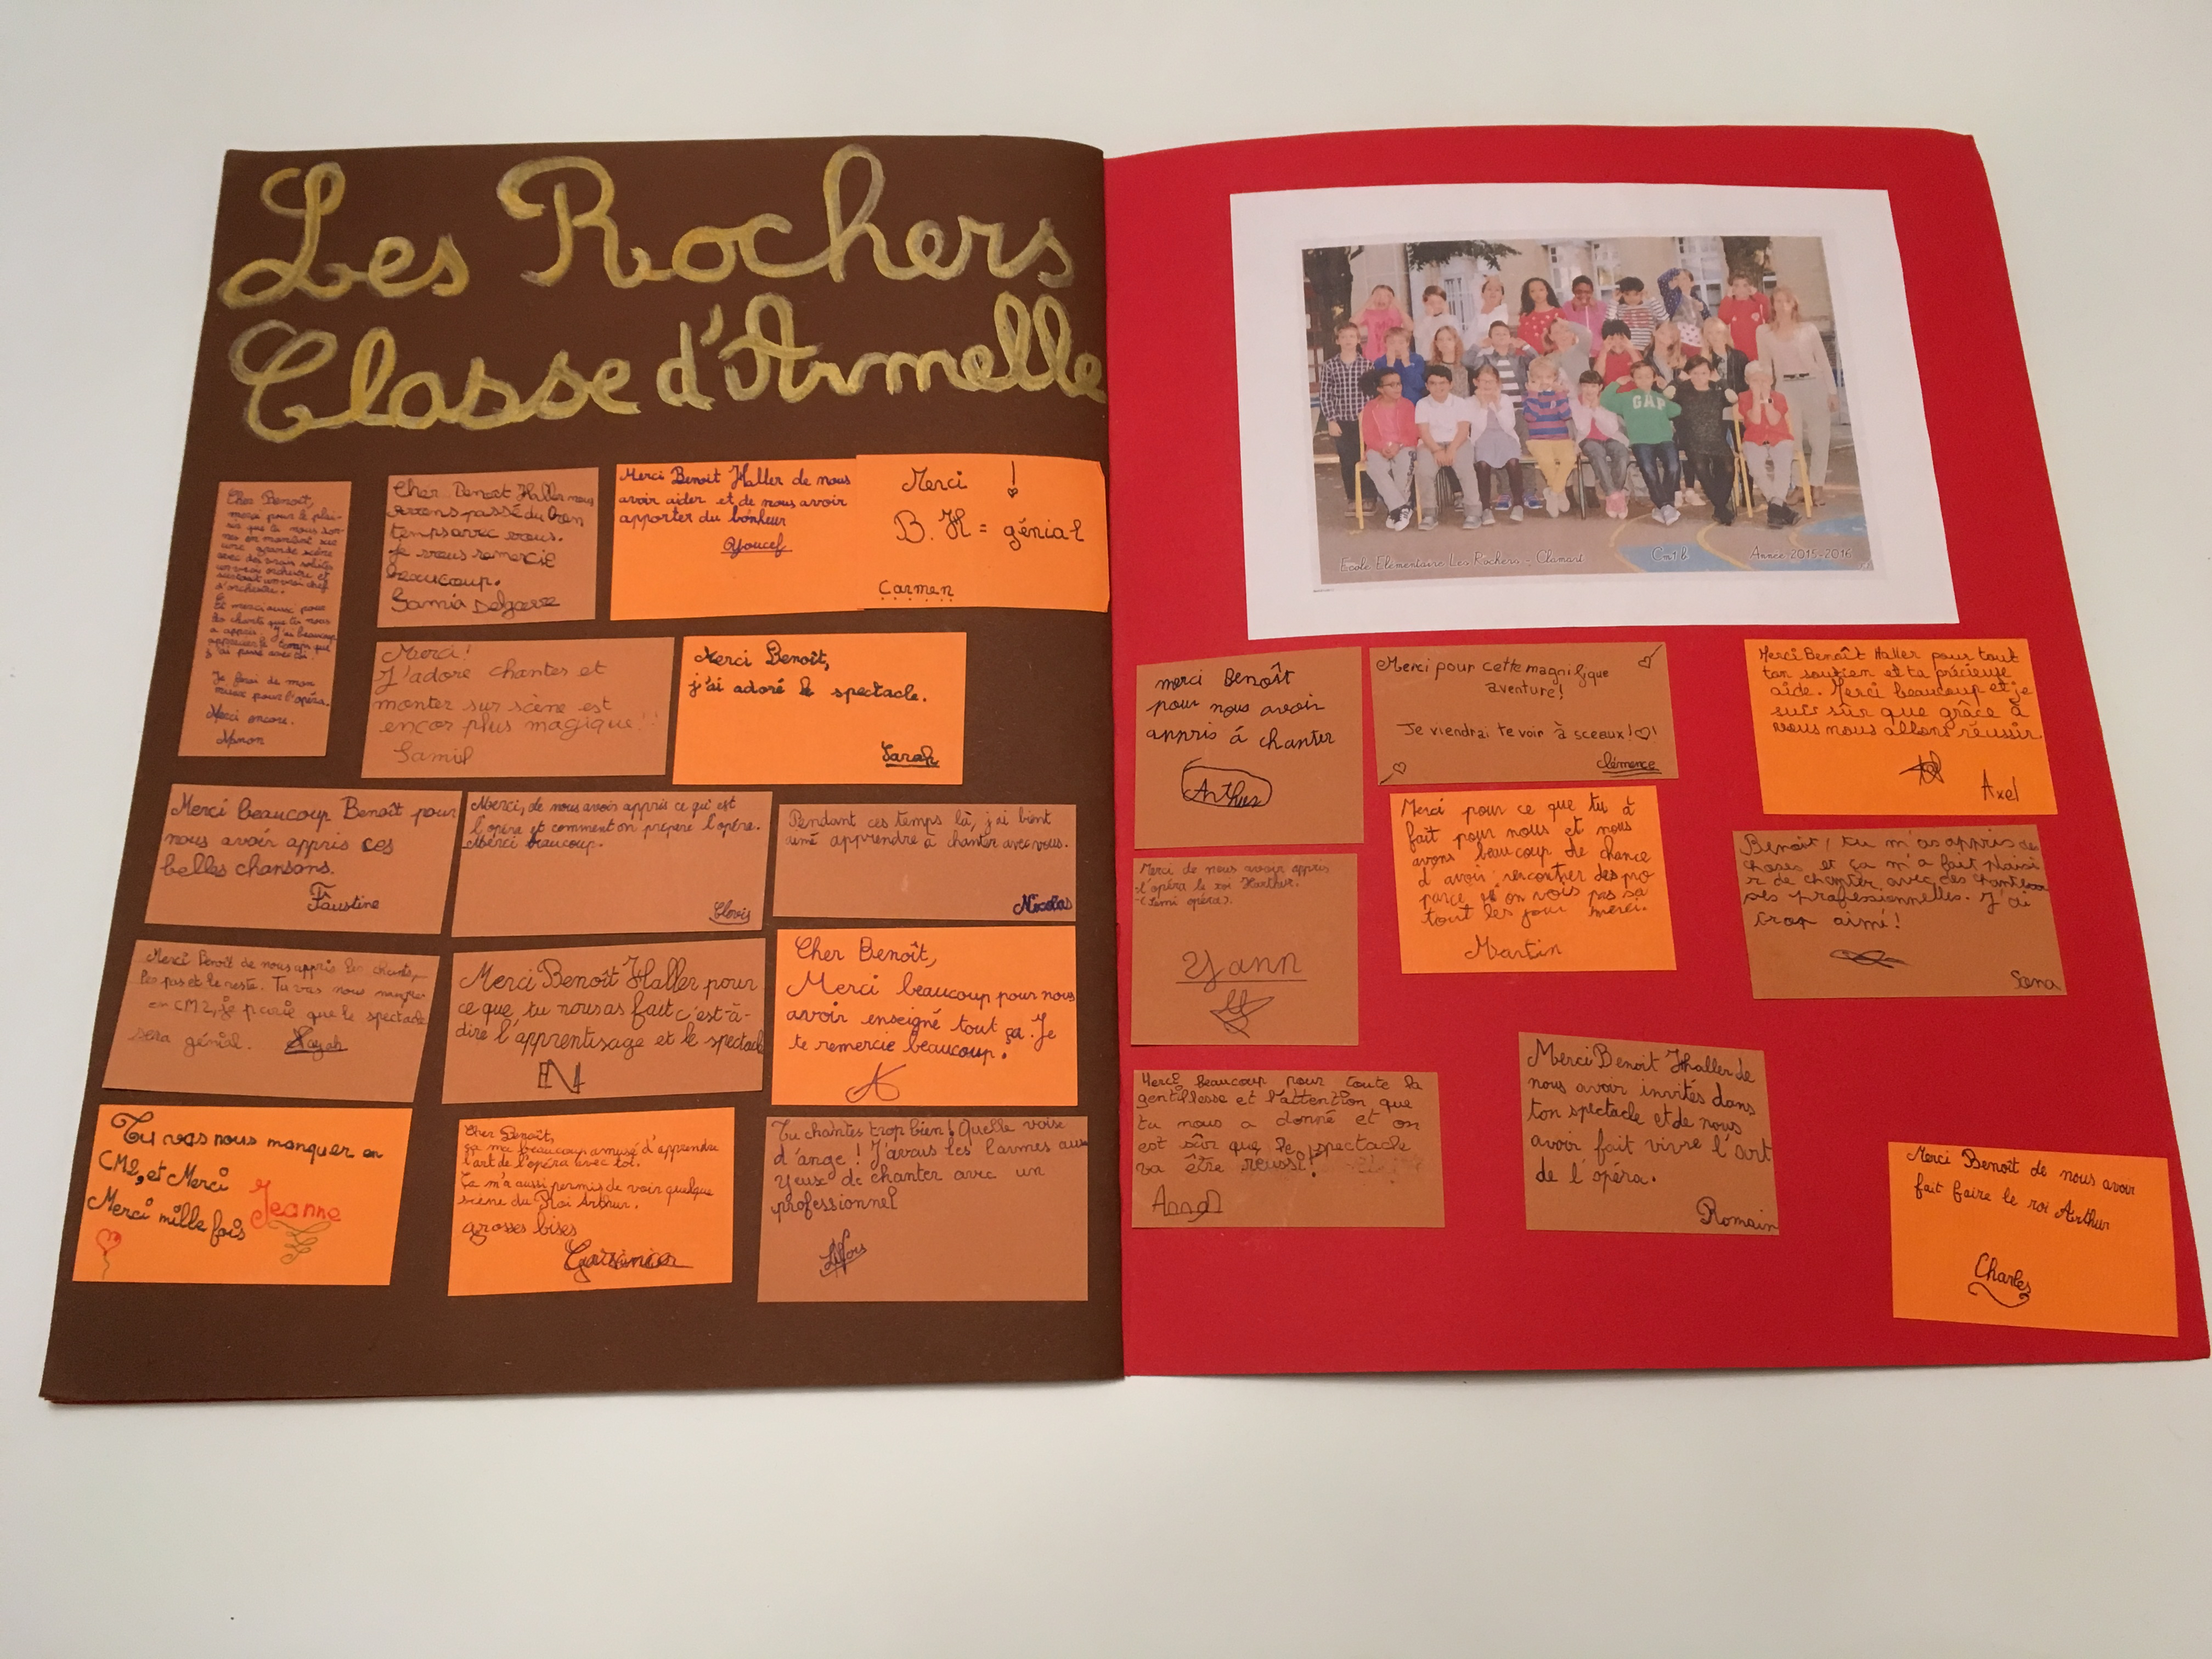 Les Rochers
Classe d'Armelle
Cher Benoît,
merci pour le plai-
sir que tu nous don-
nes en montant sur
une grande scène
avec des vrais solistes
un vrai orchestre et
surtout un vrai chef
d'orchestre.
Et merci aussi pour
les chants que tu nous
a appris. J'ai beaucoup
apprécier le temps que
j'ai passé avec toi.
Je ferai de mon
mieux pour l'opéra.
Merci encore.
Manon
Cher Benoit Haller nous
avons passé du bon
temps avec vous.
Je vous remercie
beaucoup.
Samia
Merci Benoit Haller de nous
avoir aider et de nous avoir
apporter du bonheur
Youcef
Merci !
B. H = génial
Carmen
Merci!
J'adore chantes et
monter sur scène est
encor plus magique!!
Samuel
Merci Benoît,
j'ai adoré le spectacle.
Sarah
Merci beaucoup Benoît pour
nous avoir appris ces
belles chansons.
Faustine
Merci, de nous avoir appris ce qu'est
l'opéra et comment on prépare l'opéra.
Merci beaucoup.
Clovis
Pendant ces temps là, j'ai bient
aimé apprendre à chanter avec vous.
Nicolas
Merci Benoît de nous appris les chants,
les pas et le reste. Tu vas nous manquer
en CM2, je parie que le spectacle
sera génial.
Merci Benoît Haller pour
ce que tu nous as fait c'est-à-
dire l'apprentisage et le spectacle
Cher Benoît,
Merci beaucoup pour nous
avoir enseigné tout ça. Je
te remercie beaucoup.
Tu vas nous manquer en
CM2, et Merci
Merci mille fois
Jeanne
Cher Benoît,
ça ma beaucoup amusé d'apprendre
l'art de l'opéra avec toi.
Ça m'a aussi permis de voir quelque
scène du Roi Arthur.
grosses bises
Tu chantes trop bien! Quelle voise
d'ange! J'avais les larmes aux
yeux de chanter avec un
professionnel
GAP
Ecole Elementaire Les Rochers - Clamart
Cm1 b
Année 2015-2016
merci Benoît
pour nous avoir
appris à chanter
Arthus
Merci pour cette magnifique
aventure!
Je viendrai te voir à sceaux!
Clémence
Merci Benoît Haller pour tout
ton soutien et ta précieuse
aide. Merci beaucoup et je
suis sûr que grâce à
vous nous allons réussir
Axel
Merci de nous avoir appris
l'opéra le roi Harthur.
(Semi opéra).
Yann
Merci pour ce que tu à
fait pour nous et nous
avons beaucoup de chance
d'avoir rencontrer des pro
parce on vois pas sa
tout les jour merci.
Martin
Benoît, tu m'as appris des
choses et ça m'a fait plaisi
r de chanter avec des chanteu
ses professionnelles. J'ai
trop aimé!
Sana
Merci beaucoup pour toute la
gentillesse et l'attention que
tu nous a donné et on
est sûr que le spectacle
va être réussi!
Merci Benoit Hhaller de
nous avoir invités dans
ton spectacle et de nous
avoir fait vivre l'art
de l'opéra.
Romain
Merci Benoît de nous avoir
fait faire le roi Arthur
Charles